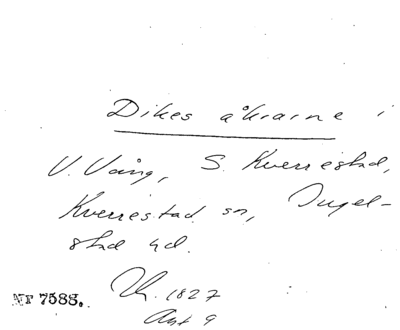 Dikes åkrarne i
V. Vång, S. Kverrestad,
Kverrestad sn, Ingel-
stad hd.
Nr 7588. 1827
Akt 9